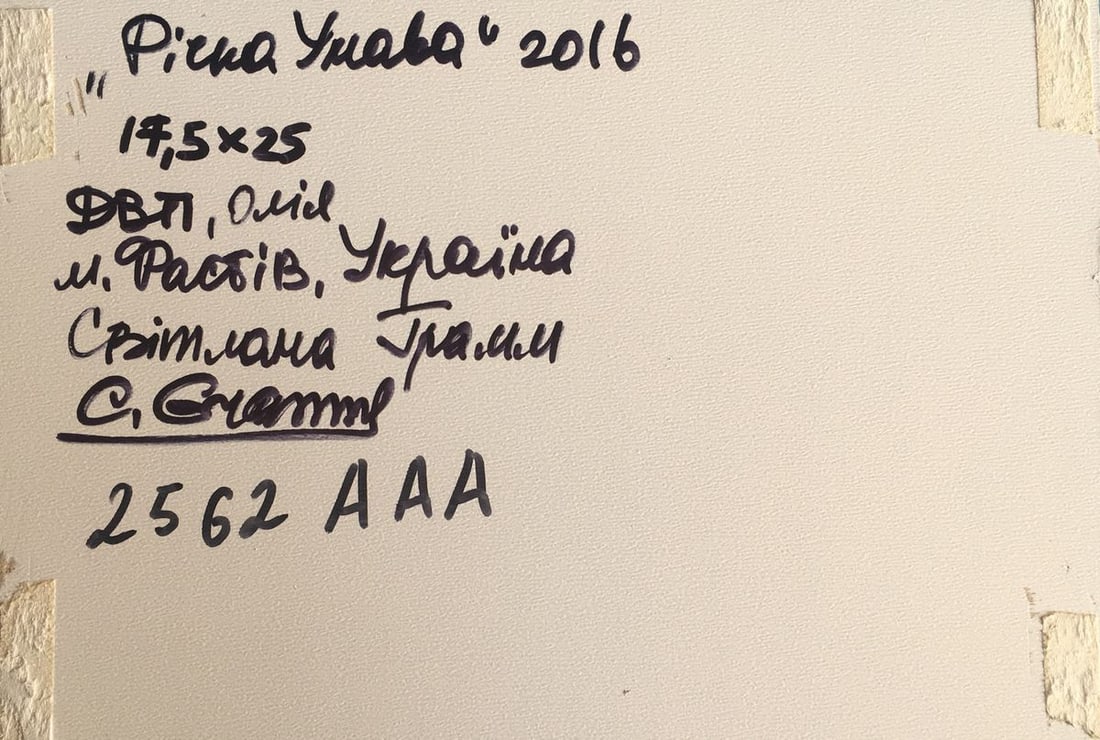 „Річка Унава“ 2016
17,5×25
ДВП, олія
м. Фастів, Україна
Світлана Грамм
С.
2562 ААА